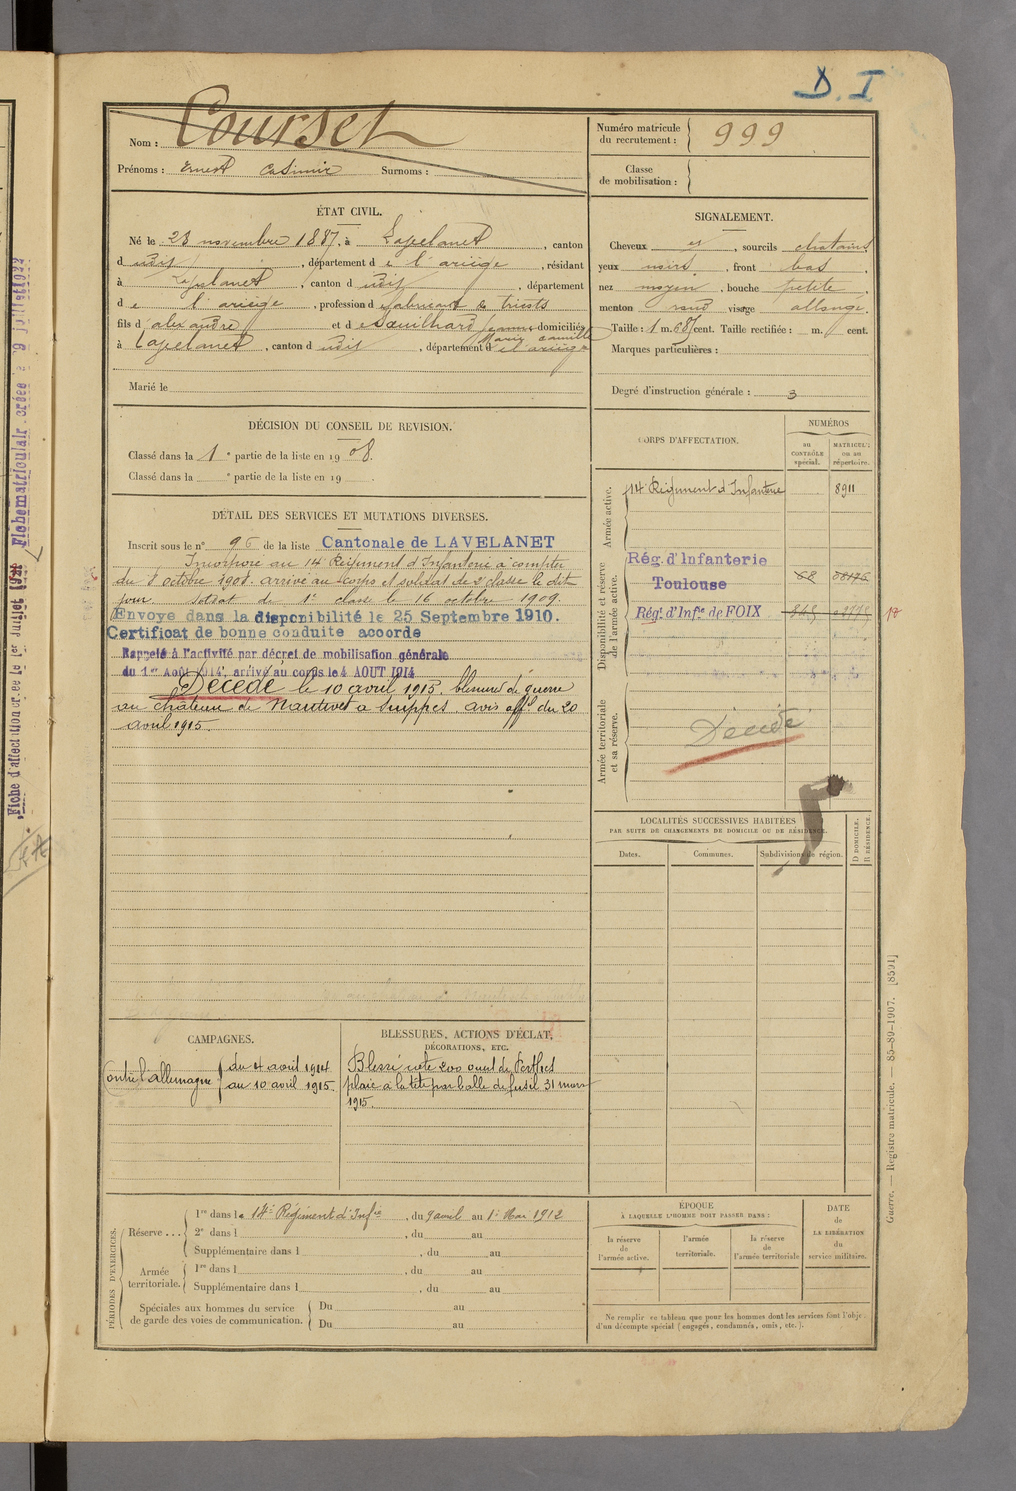 D. I
Nom : Courset
Prénoms : Ernest Casimir Surnoms :
Numéro matricule
du recrutement : 999
Classe
de mobilisation :
ÉTAT CIVIL.
Né le 23 novembre 1887, à Lavelanet, canton
dudit, département de l'ariège, résidant
à Lavelanet, canton dudit, département
de l'ariège, profession de fabricant de tricots
fils d'alexandre et de Jeanne domiciliés
Marie Camille
à Lavelanet, canton dudit, département de l'ariège
Marié le
SIGNALEMENT.
Cheveux et, sourcils chatains
yeux noirs, front bas,
nez moyen, bouche petite,
menton rond visage allongé.
Taille : 1 m. 68 cent. Taille rectifiée : m. cent.
Marques particulières :
Degré d'instruction générale : 3
DÉCISION DU CONSEIL DE REVISION.
Classé dans la 1e partie de la liste en 1908.
Classé dans la e partie de la liste en 19
DÉTAIL DES SERVICES ET MUTATIONS DIVERSES.
Inscrit sous le n° 96 de la liste Cantonale de LAVELANET
Incorporé au 14e Régiment d'Infanterie à compter
du 8 octobre 1908. arrivé au corps et soldat de 2e classe le dit
jour. Soldat de 1e classe le 16 octobre 1909.
Envoyé dans la disponibilité le 25 Septembre 1910.
Certificat de bonne conduite accordé
Rappelé à l'activité par décret de mobilisation générale
du 1er Août 1914, arrivé au corps le 4 AOUT 1914
Décédé le 10 avril 1915. blessures de guerre
au château de Nantivet à Suippes avis off. du 20
avril 1915.
CORPS D'AFFECTATION.
NUMÉROS
au
CONTRÔLE
spécial.
MATRICULE
ou au
répertoire.
Armée active.
14e Régiment d'Infanterie 8911
Disponibilité et réserve
de l'armée active.
Rég. d'Infanterie
Toulouse 68
Rég. d'Infie de FOIX 17
Armée territoriale
et sa réserve.
Décédé
LOCALITÉS SUCCESSIVES HABITÉES
PAR SUITE DE CHANGEMENTS DE DOMICILE OU DE RÉSIDENCE.
Dates. Communes. Subdivisions de région.
D DOMICILE.
R RÉSIDENCE.
CAMPAGNES.
Contre l'allemagne du 4 août 1914
au 10 avril 1915.
BLESSURES, ACTIONS D'ÉCLAT,
DÉCORATIONS, ETC.
Blessé cote 200 ouest de Perthes
plaie à la tête par balle de fusil 31 mars
1915.
PÉRIODES D'EXERCICES.
Réserve ...
1re dans le 14e Régiment d'Infie, du 9 avril au 1e Mai 1912
2e dans l , du au
Supplémentaire dans l , du au
Armée
territoriale.
1re dans l , du au
Supplémentaire dans l , du au
Spéciales aux hommes du service
de garde des voies de communication.
Du au
Du au
ÉPOQUE
À LAQUELLE L'HOMME DOIT PASSER DANS :
la réserve
de
l'armée active.
l'armée
territoriale.
la réserve
de
l'armée territoriale
DATE
de
LA LIBÉRATION
du
service militaire.
Ne remplir ce tableau que pour les hommes dont les services font l'obje
d'un décompte spécial (engagés, condamnés, omis, etc.).
Guerre. — Registre matricule. — 85-89-1907. [8591]